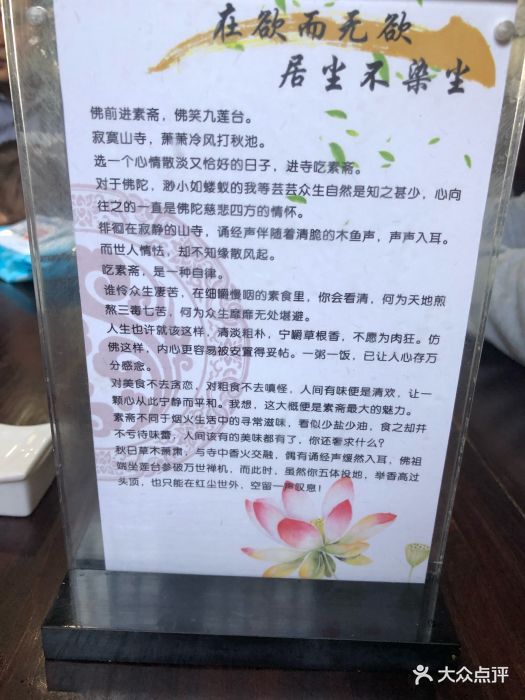 在欲而无欲
居尘不染尘
佛前进素斋，佛笑九莲台。
寂寞山寺，萧萧冷风打秋池。
选一个心情散淡又恰好的日子，进寺吃素斋。
对于佛陀，渺小如蝼蚁的我等芸芸众生自然是知之甚少，心向
往之的一直是佛陀慈悲四方的情怀。
徘徊在寂静的山寺，诵经声伴随着清脆的木鱼声，声声入耳。
而世人情怯，却不知缘散风起。
吃素斋，是一种自律。
谁怜众生凄苦，在细嚼慢咽的素食里，你会看清，何为天地煎
熬三毒七苦，何为众生靡靡无处堪避。
人生也许就该这样，清淡粗朴，宁嚼草根香，不愿为肉狂。仿
佛这样，内心更容易被安置得妥帖。一粥一饭，已让人心存万
分感念。
对美食不去贪恋，对粗食不去嗔怪，人间有味便是清欢，让一
颗心从此宁静而平和。我想，这大概便是素斋最大的魅力。
素斋不同于烟火生活中的寻常滋味，看似少盐少油，食之却并
不亏待味蕾，人间该有的美味都有了，你还奢求什么？
秋日草木萧肃，与寺中香火交融，偶有诵经声缓然入耳，佛祖
端坐莲台参破万世禅机，而此时，虽然你五体投地，举香高过
头顶，也只能在红尘世外，空留一声叹息！
大众点评